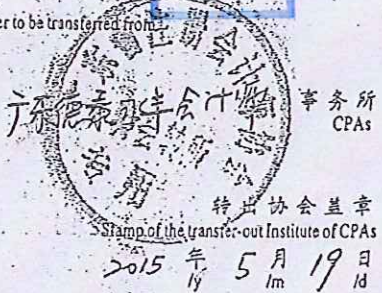 er to be transferred from
广东德 会计师 事务所
CPAs
转出协会盖章
Stamp of the transfer-out Institute of CPAs
2015 年 5 月 19 日
/y /m /d